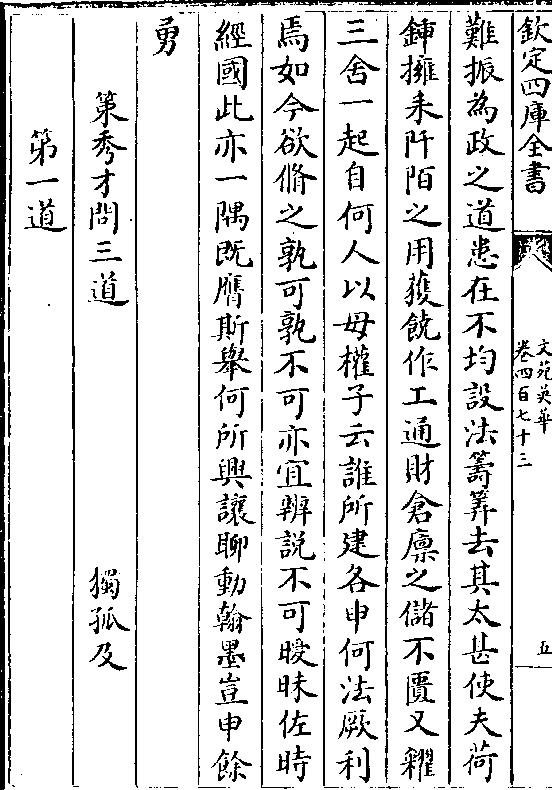 欽定四庫全書
文苑英華
卷四百七十三
五
難振為政之道患在不均設法籌筭去其太甚使夫荷
鍤擁耒阡陌之用獲饒作工通財倉廪之儲不匱又糴
三舍一起自何人以母權子云誰所建各申何法厥利
焉如今欲脩之孰可孰不可亦宜辨說不可曖昧佐時
經國此亦一隅既膺斯舉何所興讓聊動翰墨豈申餘
勇
策秀才問三道 獨孤及
第一道